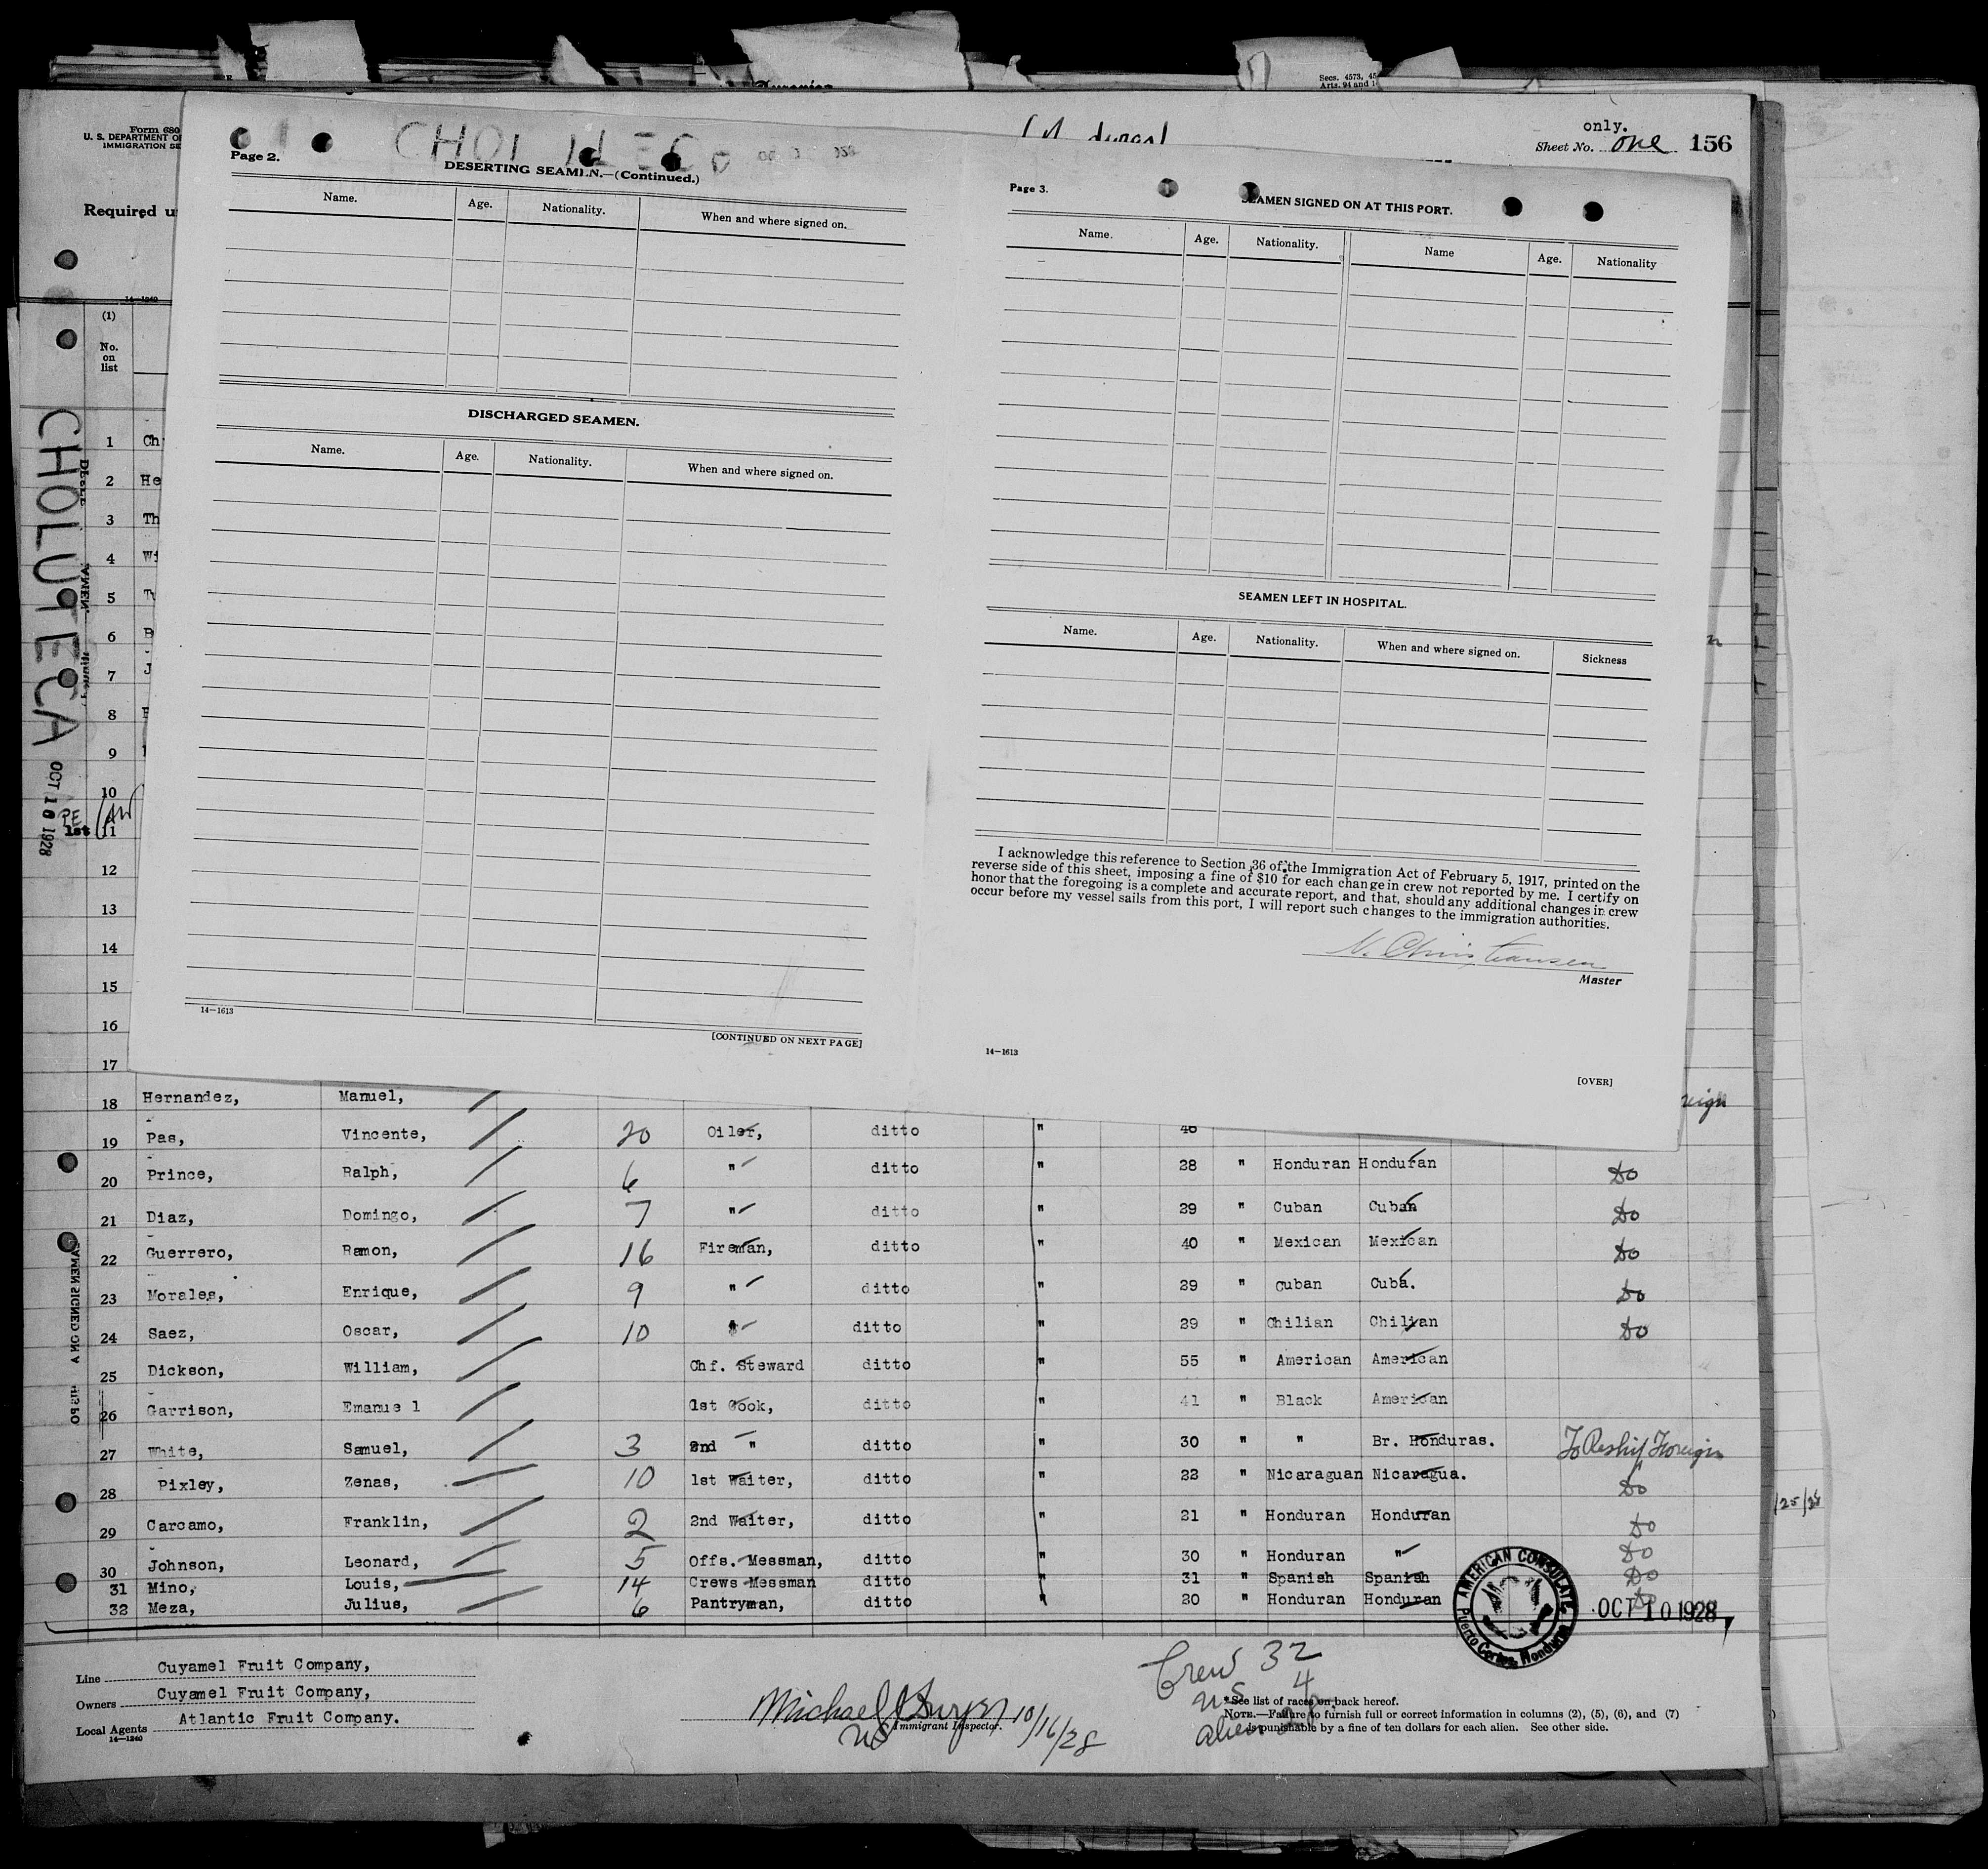 Secs. 4573, 45
Arts. 94 and 1
Form 680
U. S. DEPARTMENT O
IMMIGRATION SE
Required u
14—1240
only.
Sheet No. one 156
(1)
No.
on
list
CHOLUTECA OCT 16 1928
PE
1st
1 Ch
2 He
3 Th
4 Wi
5 Tw
6 B
7 J
8
9
10
11
12
13
14
15
16
17
Page 2.
DESERTING SEAMEN.—(Continued.)
Name. Age. Nationality. When and where signed on.
DISCHARGED SEAMEN.
Name. Age. Nationality. When and where signed on.
14—1613
[CONTINUED ON NEXT PAGE]
Page 3.
SEAMEN SIGNED ON AT THIS PORT.
Name. Age. Nationality. Name Age. Nationality
SEAMEN LEFT IN HOSPITAL.
Name. Age. Nationality. When and where signed on. Sickness
I acknowledge this reference to Section 36 of the Immigration Act of February 5, 1917, printed on the
reverse side of this sheet, imposing a fine of $10 for each change in crew not reported by me. I certify on
honor that the foregoing is a complete and accurate report, and that, should any additional changes in crew
occur before my vessel sails from this port, I will report such changes to the immigration authorities.
N. Christiansen
Master
14—1613
[OVER]
18 Hernandez, Manuel, reign
19 Pas, Vincente, 20 Oiler, ditto " 40
20 Prince, Ralph, 6 " ditto " 28 " Honduran Honduran Do
21 Diaz, Domingo, 7 " ditto " 29 " Cuban Cuban Do
22 Guerrero, Ramon, 16 Fireman, ditto " 40 " Mexican Mexican Do
23 Morales, Enrique, 9 " ditto " 29 " Cuban Cuba. Do
24 Saez, Oscar, 10 " ditto " 29 " Chilian Chilian Do
25 Dickson, William, Chf. Steward ditto " 55 " American American
26 Garrison, Emanuel 1st Cook, ditto " 41 " Black American
27 White, Samuel, 3 2nd " ditto " 30 " " Br. Honduras. To Reship Foreign
28 Pixley, Zenas, 10 1st Waiter, ditto " 22 " Nicaraguan Nicaragua. Do
29 Carcamo, Franklin, 2 2nd Waiter, ditto " 21 " Honduran Honduran Do
30 Johnson, Leonard, 5 Offs. Messman, ditto " 30 " Honduran " Do
31 Mino, Louis, 14 Crews Messman ditto " 31 " Spanish Spanish Do
32 Meza, Julius, 6 Pantryman, ditto " 20 " Honduran Honduran Do
AMERICAN CONSULATE
Puerto Cortes, Honduras
OCT 10 1928
Line Cuyamel Fruit Company,
Owners Cuyamel Fruit Company,
Local Agents Atlantic Fruit Company.
14—1240
Michael
US Immigrant Inspector. 10/16/28
Crew 32
US 4
alien
* See list of races on back hereof.
NOTE.—Failure to furnish full or correct information in columns (2), (5), (6), and (7)
is punishable by a fine of ten dollars for each alien. See other side.